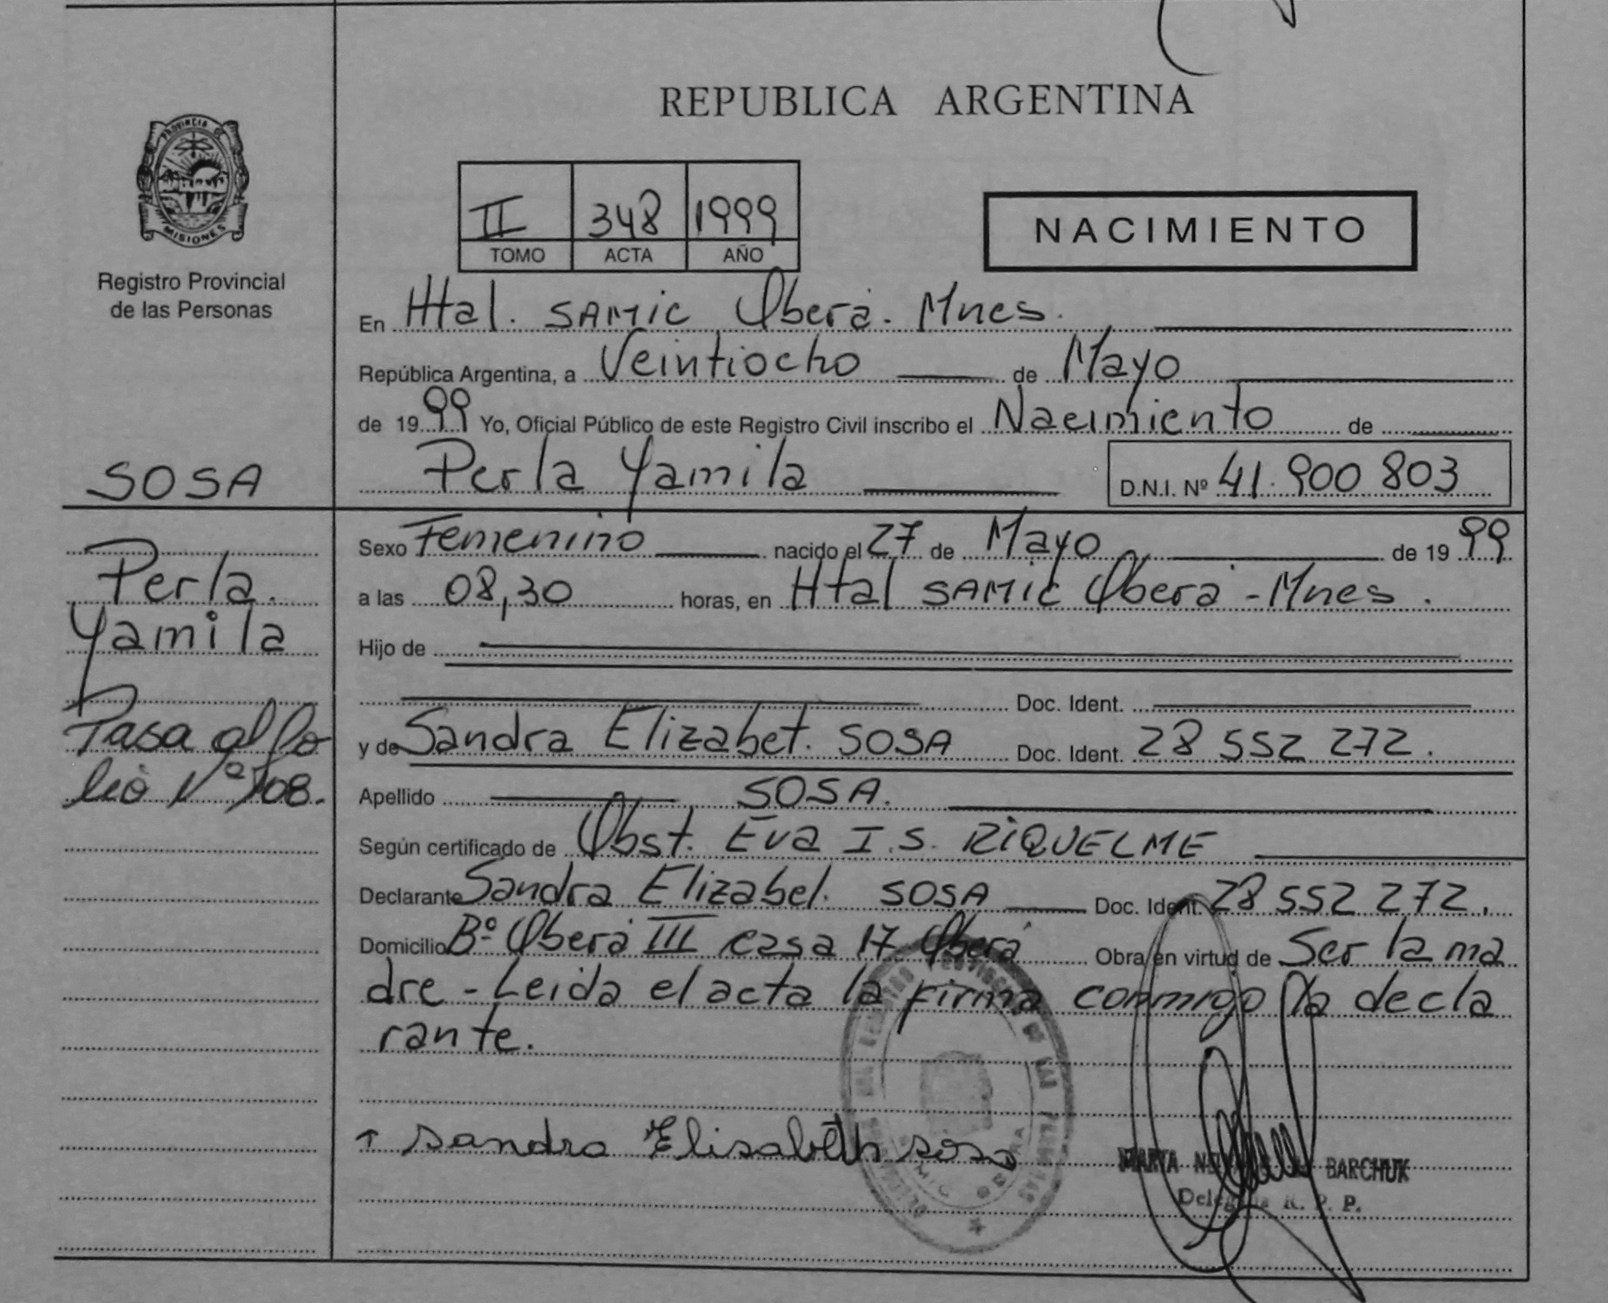 REPUBLICA ARGENTINA
PROVINCIA DE
MISIONES
Registro Provincial
de las Personas
II 348 1999
TOMO ACTA AÑO
NACIMIENTO
En Htal. SAMIC Oberá. Mnes.
República Argentina, a Veintiocho de Mayo
de 1999 Yo, Oficial Público de este Registro Civil inscribo el Nacimiento de
Perla Yamila D.N.I. Nº 41.900 803
SOSA
Perla.
Yamila
Pasa al fo
lio Nº 108.
Sexo Femenino nacido el 27 de Mayo de 1999
a las 08,30 horas, en Htal SAMIC Oberá - Mnes.
Hijo de
Doc. Ident.
y de Sandra Elizabet. SOSA Doc. Ident. 28 552 272.
Apellido SOSA.
Según certificado de Obst. Eva I.S. RIQUELME
Declarante Sandra Elizabet. SOSA Doc. Ident. 28 552 272.
Domicilio Bº Oberá III casa 17 Oberá Obra en virtud de Ser la ma
dre - Leida el acta la firma conmigo la decla
rante.
Sandra Elisabeth Sosa
BARCHUK
R. P. P.